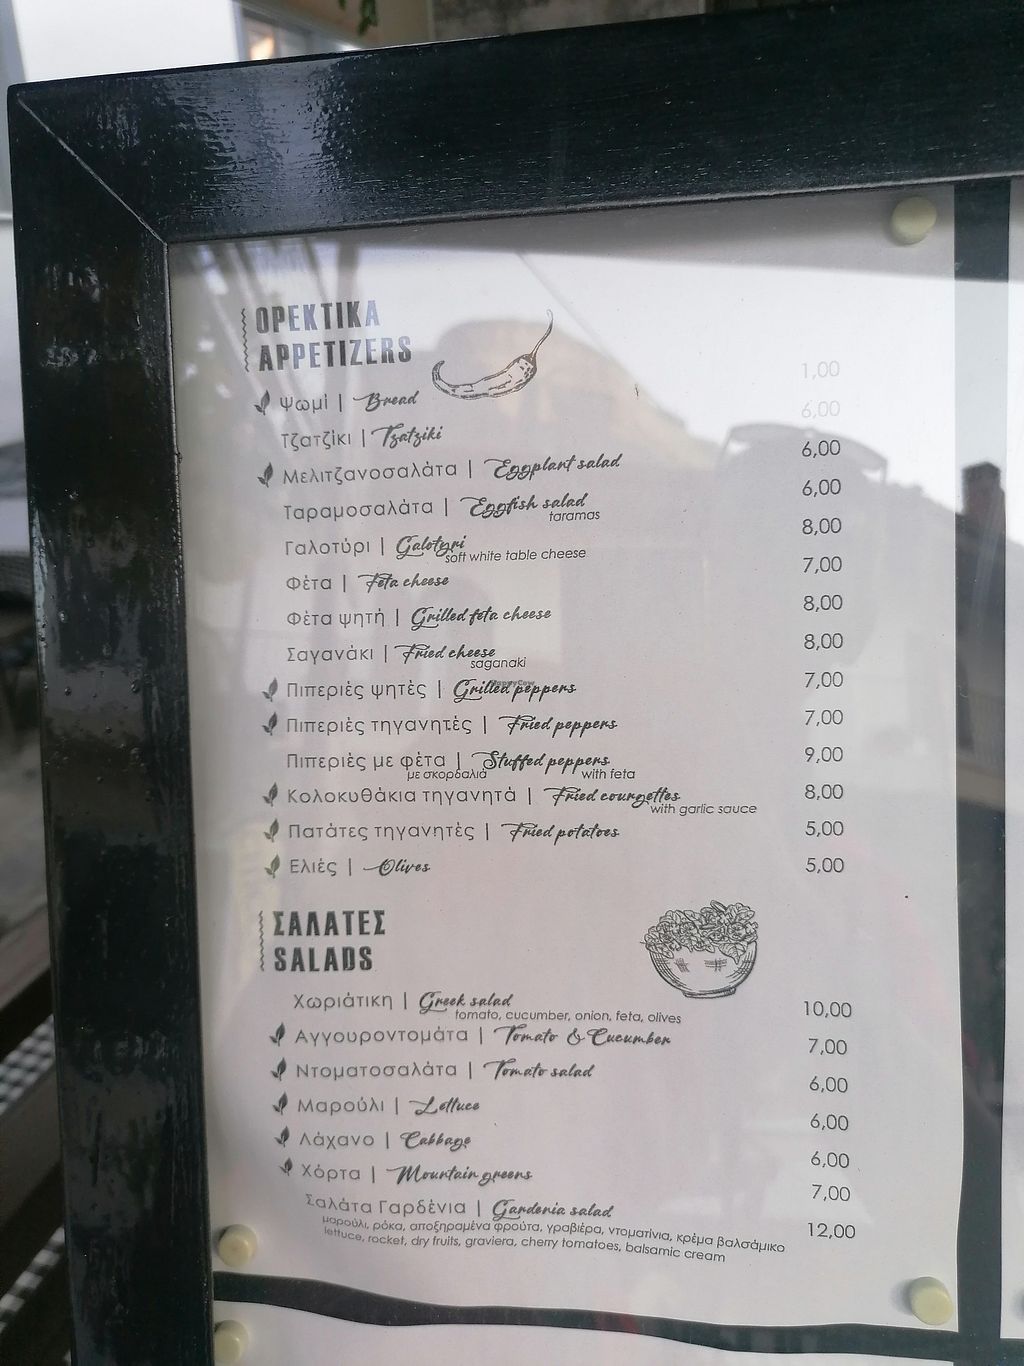 ΟΡΕΚΤΙΚΑ
APPETIZERS
Ψωμί | Bread 1,00
Τζατζίκι | Tzatziki 6,00
Μελιτζανοσαλάτα | Eggplant salad 6,00
Ταραμοσαλάτα | Eggfish salad 6,00
taramas
Γαλοτύρι | Galotyri 8,00
soft white table cheese
Φέτα | Feta cheese 7,00
Φέτα ψητή | Grilled feta cheese 8,00
Σαγανάκι | Fried cheese 8,00
saganaki
Πιπεριές ψητές | Grilled peppers 7,00
HappyCow
Πιπεριές τηγανητές | Fried peppers 7,00
Πιπεριές με φέτα | Stuffed peppers 9,00
με σκορδαλιά with feta
Κολοκυθάκια τηγανητά | Fried courgettes 8,00
with garlic sauce
Πατάτες τηγανητές | Fried potatoes 5,00
Ελιές | Olives 5,00
ΣΑΛΑΤΕΣ
SALADS
Χωριάτικη | Greek salad 10,00
tomato, cucumber, onion, feta, olives
Αγγουροντομάτα | Tomato & Cucumber 7,00
Ντοματοσαλάτα | Tomato salad 6,00
Μαρούλι | Lettuce 6,00
Λάχανο | Cabbage 6,00
Χόρτα | Mountain greens 7,00
Σαλάτα Γαρδένια | Gardenia salad 12,00
μαρούλι, ρόκα, αποξηραμένα φρούτα, γραβιέρα, ντοματίνια, κρέμα βαλσάμικο
lettuce, rocket, dry fruits, graviera, cherry tomatoes, balsamic cream